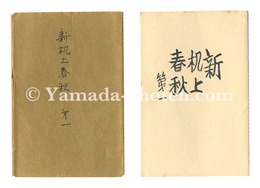 新机上春秋 第一
新
机上
春秋
第一
© Yamada-photo.com